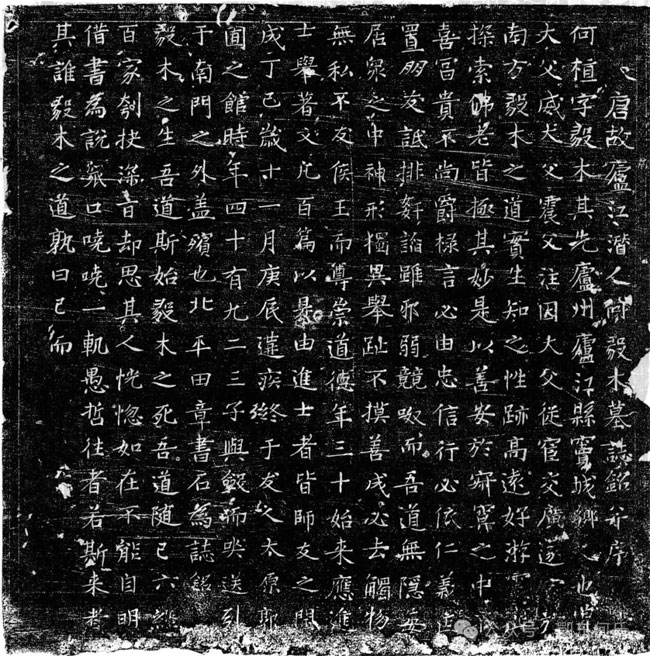 唐故廬江潛人何毅木墓誌銘并序
何楦字毅木其先廬州廬江縣靈城鄉人也
大父威大父震父注因大父從宦交廣遂
南方毅木之道實生知之性跡高遠好游雲
探索佛老皆極其妙是以善安於窮窶之中
喜冨貴不尚爵祿言必由忠信行必依仁義
置朋友詆排姧諂雖邪弱競呶而吾道無隱每
居衆之中神形獨異舉趾不摸善成必去觸物
無私不友侯王而尊崇道德年三十始来應進
士舉著文凡百篇以是由進士者皆師友之開
成丁巳歲十一月庚辰遘疾終于友人太原郭
圓之館時年四十有九二三子輿輀而哭送引
于南門之外盖殯也北平田章書石為誌銘
毅木之生吾道斯始毅木之死吾道隨已六
百家刳抉深旨却思其人恍惚如在不能自明
借書為說衆口嘵嘵一軌愚哲往者若斯来者
其誰毅木之道孰曰已而